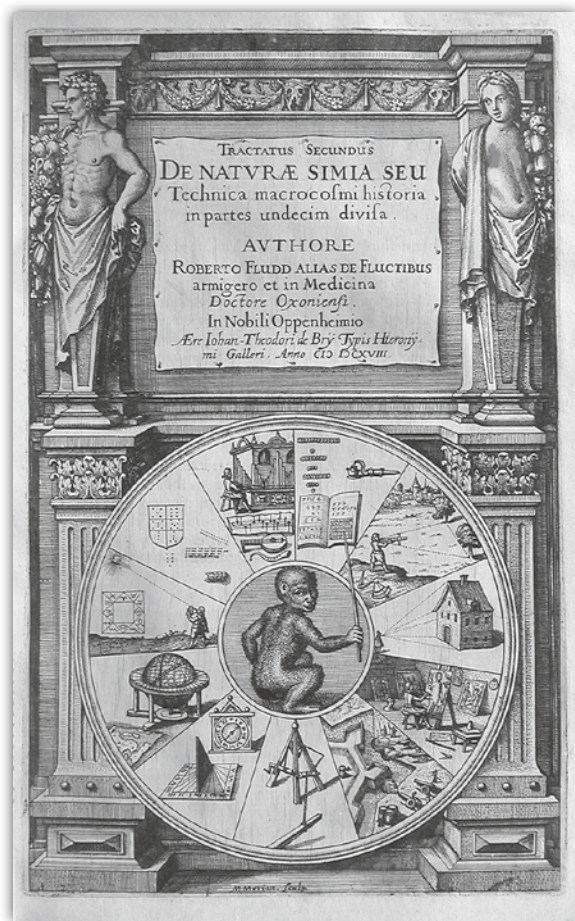 TRACTATUS SECUNDUS
DE NATVRÆ SIMIA SEU
Technica macrocosmi historia
in partes undecim divisa.
AVTHORE
ROBERTO FLUDD ALIAS DE FLUCTIBUS
armigero et in Medicina
Doctore Oxoniensi.
In Nobili Oppenheimio
Ære Iohan-Theodori de Brÿ Typis Hieronÿ-
mi Galleri. Anno CIƆ IƆCXVIII.
M Merian. sculp.